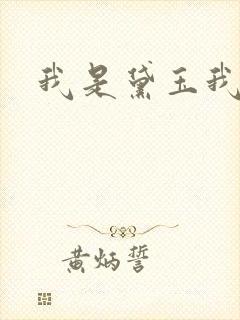 我是黛玉我
黄炳誓